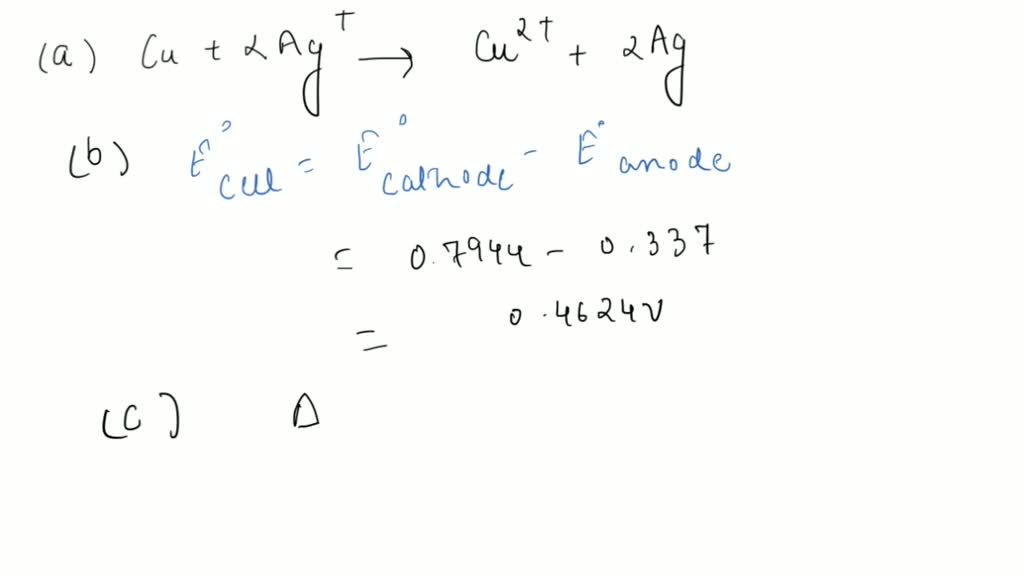 (a) Cu + 2Ag⁺ → Cu²⁺ + 2Ag
(b) E°cell = E°cathode - E°anode
= 0.7944 - 0.337
= 0.4624V
(C) Δ